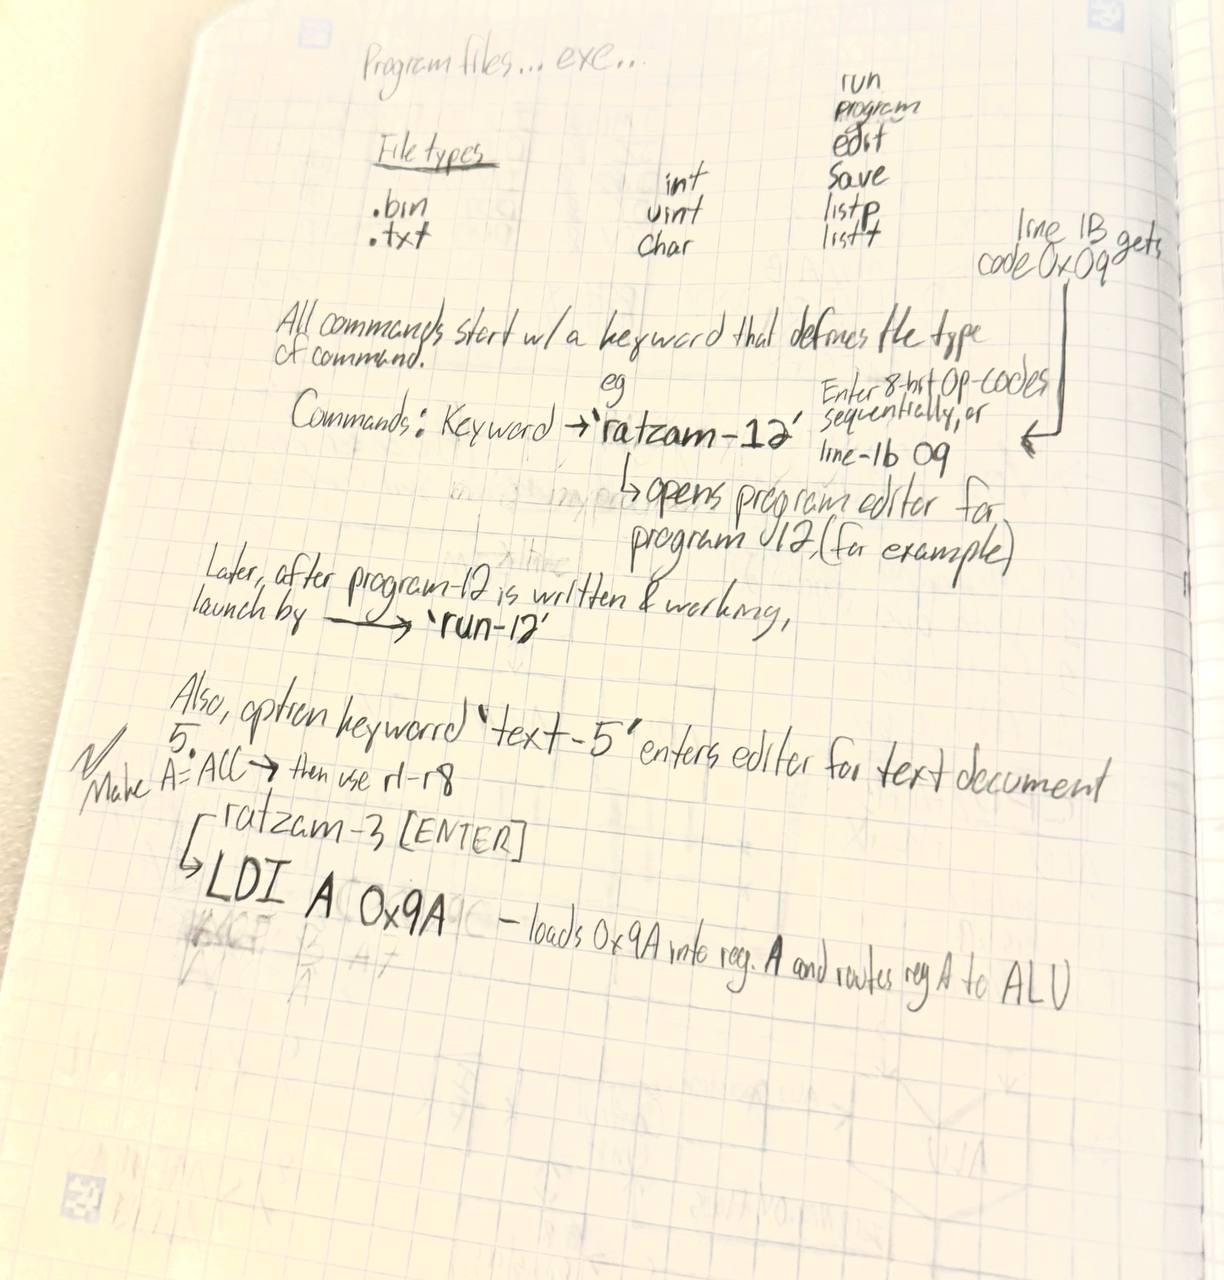 Program files... exe...
File types
.bin
.txt
int
uint
char
run
program
edit
save
listp
listt
line 1B gets
code 0x09
All commands start w/ a keyword that defines the type
of command.
eg
Commands: Keyword → 'ratzam-12'
Enter 8-bit Op-codes
sequentially, or
line-1b 09
↳ opens program editor for
program 12, (for example)
Later, after program-12 is written & working,
launch by → 'run-12'
Also, option keyword 'text-5' enters editor for text document
5.
Make A=ACC → then use r1-r8
ratzam-3 [ENTER]
↳ LDI A 0x9A - loads 0x9A into reg. A and routes reg A to ALU